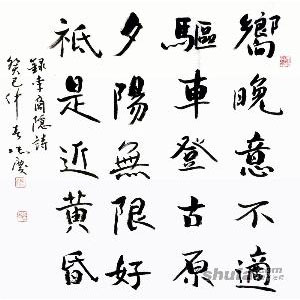 嚮晚意不適
驅車登古原
夕陽無限好
祇是近黃昏
錄李商隱詩
癸巳仲春